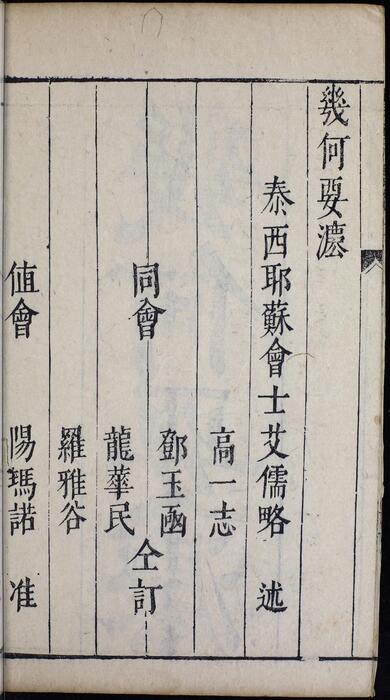 幾何要灋
泰西耶蘇會士艾儒略 述
高一志
同會 鄧玉函 仝訂
龍華民
羅雅谷
值會 陽瑪諾 准